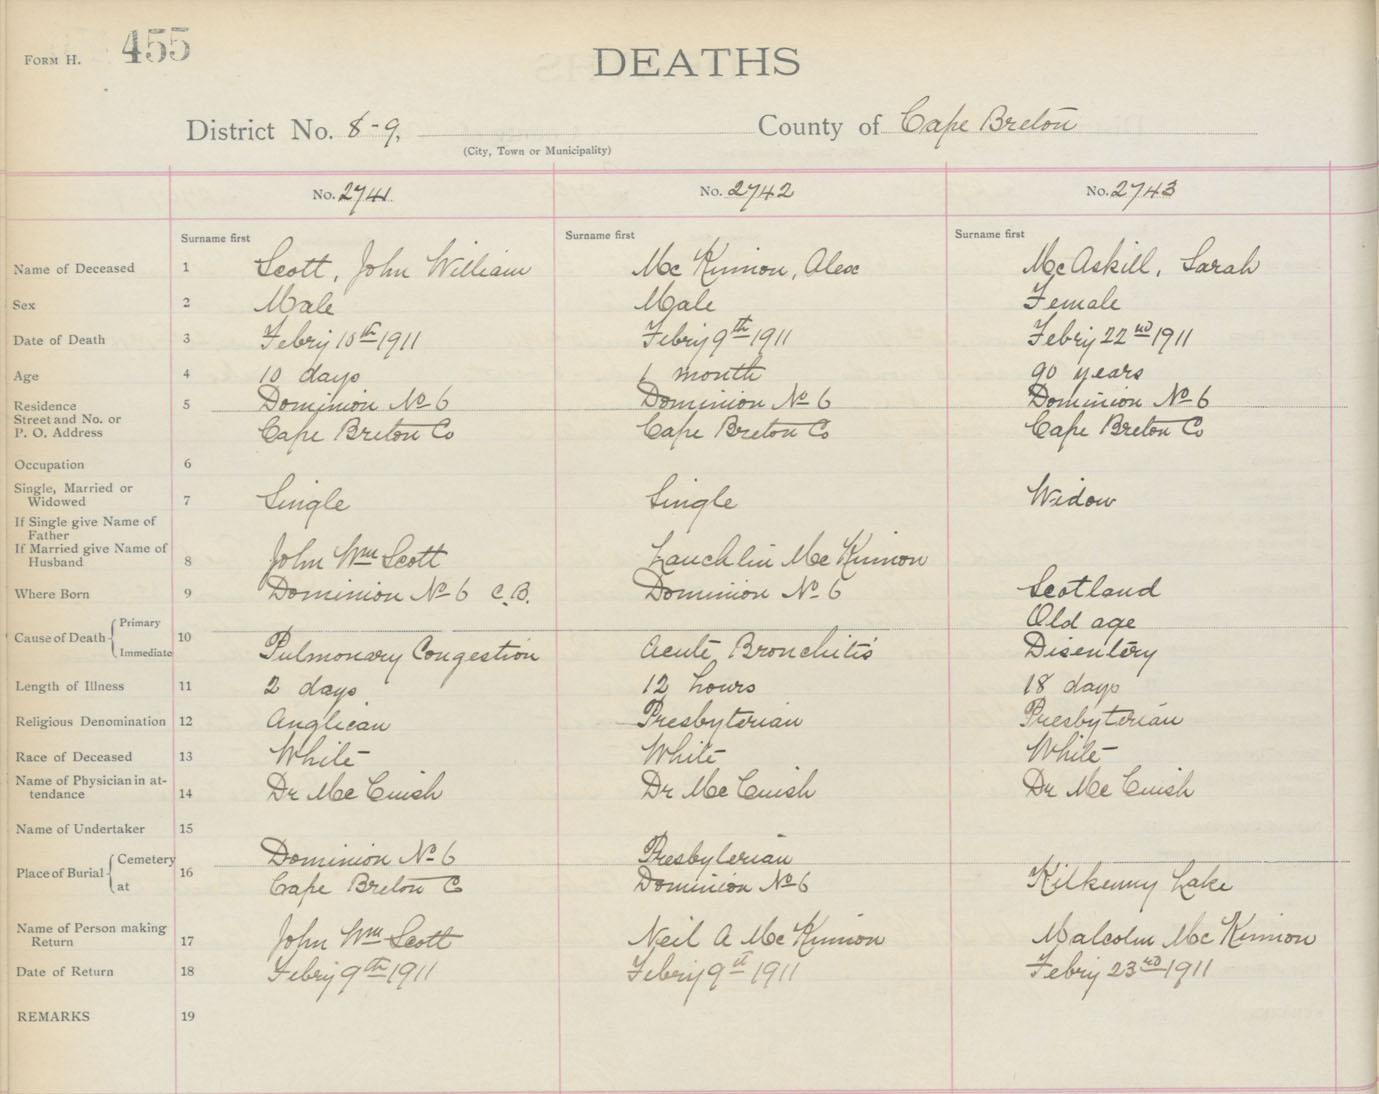 FORM H. 455
DEATHS
District No. 8-9, County of Cape Breton
(City, Town or Municipality)
No. 2741 No. 2742 No. 2743
Surname first Surname first Surname first
Name of Deceased 1 Scott, John William Mc Kinnon, Alex McAskill, Sarah
Sex 2 Male Male Female
Date of Death 3 Febry 10th 1911 Febry 9th 1911 Febry 22nd 1911
Age 4 10 days 1 month 90 years
Residence 5 Dominion No 6 Dominion No 6 Dominion No 6
Street and No. or
P. O. Address Cape Breton Co Cape Breton Co Cape Breton Co
Occupation 6
Single, Married or
Widowed 7 Single Single Widow
If Single give Name of
Father
If Married give Name of
Husband 8 John Wm Scott Lauchlin Mc Kinnon
Where Born 9 Dominion No 6 C.B. Dominion No 6 Scotland
Cause of Death Primary Old age
10 Immediate Pulmonary Congestion Acute Bronchitis Disentery
Length of Illness 11 2 days 12 hours 18 days
Religious Denomination 12 Anglican Presbyterian Presbyterian
Race of Deceased 13 White White White
Name of Physician in at-
tendance 14 Dr Mc Cuish Dr Mc Cuish Dr Mc Cuish
Name of Undertaker 15
Place of Burial Cemetery Dominion No 6 Presbyterian
16 at Cape Breton Co Dominion No 6 Kilkenny Lake
Name of Person making
Return 17 John Wm Scott Neil A Mc Kinnon Malcolm Mc Kinnon
Date of Return 18 Febry 9th 1911 Febry 9th 1911 Febry 23rd 1911
REMARKS 19